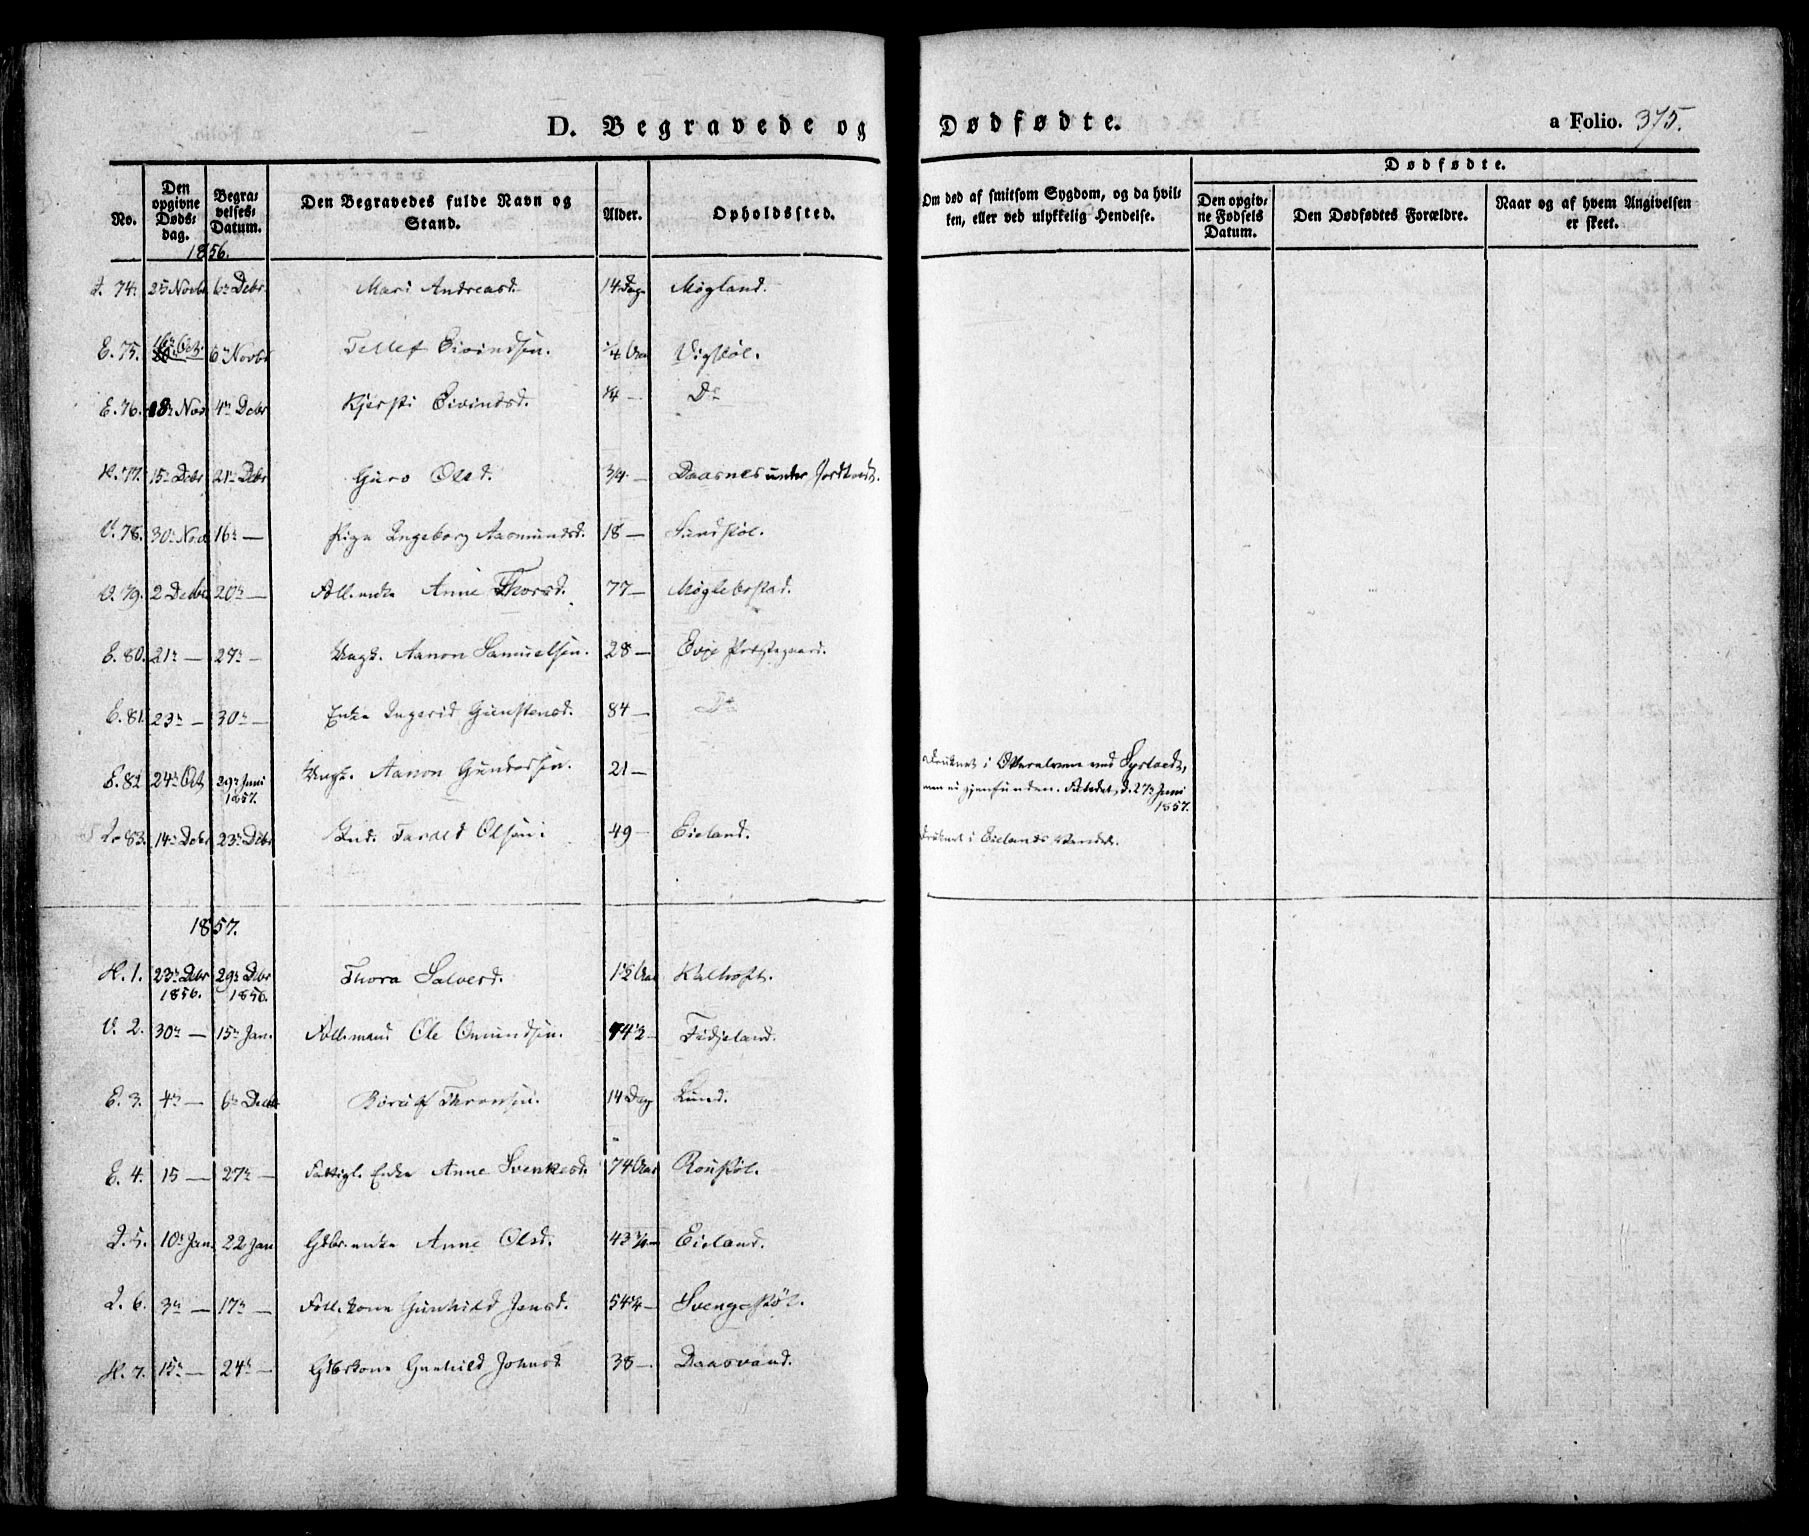 D. Begravede og Dødfødte. a Folio. 375.
No. Den opgivne Døds-dag. Begra-velses-Datum. Den Begravedes fulde Navn og Stand. Alder. Opholdssted. Om død af smitsom Sygdom, og da hvil-ken, eller ved ulykkelig Hendelse. Dødfødte. Den opgiv-ne Fødsels Datum. Den Dødfødtes Forældre. Naar og af hvem Angivelsen er skeet.
1856.
74. 25 Novbr 6te Debr Mari Andreasd. 14 Dage Møgland.
E. 75. 16de Oct. 6te Novbr Tellef Eivindsen. 1/4 Aar Vigstøl.
E. 76. 18de Nov. 4de Debr Kjersti Eivindsd. 1/4 — Do
H. 77. 15de Debr 21de Debr Guro Olsd. 3/4 — Daasnes under
V. 78. 30te Nov 16de — Pige Ingeborg Aasmundsd. 18 — Sundstøl.
V. 79. 2 Debr 20de — Foll.enke Anne Thorsd. 77 — Møglebostad.
E. 80. 21de — 27de — Ungk. Aanon Samuelsen. 28 — Evje Præstegaard.
E. 81. 23de — 30te — Enke Ingerid Gunstensd. 84 — Do
E. 82 24de Oct 29de Juni 1857. Ungk. Aanon Gundersen. 21 — Druknet i Otteraelven ved Syrtveit,
men ei gjenfunden. Kastet d. 27de Juni 1857.
83. 14de Debr 23de Debr Ind. Tarald Olsen. 49 — Eieland. Druknet i Eielands Vandet.
1857.
H. 1. 23de Debr 1856. 29de Debr 1856. Thora Salvesd. 1 1/2 Aar Kalhoft.
V. 2. 30te — 15de Jan. Foll.mand Ole Omundsen. 74 1/2 — Fidjeland.
E. 3. 4de — 6te Decbr Thronsen. 14 Dage Lund.
E. 4. 15 — 27de — Fattigl. Enke Anne Svenkesd. 74 Aar Rønstøl.
I. 5. 10de Jan. 22 Jan Gdbr.enke Anne Olsd. 43 3/4 — Eieland.
I. 6. 3de — 17de — Foll.kone Gunhild Jensd. 54 3/4 — Svengestøl.
H. 7. 15de — 24de — Gbrkone Gunhild Johnsd 38 — Daasvand.